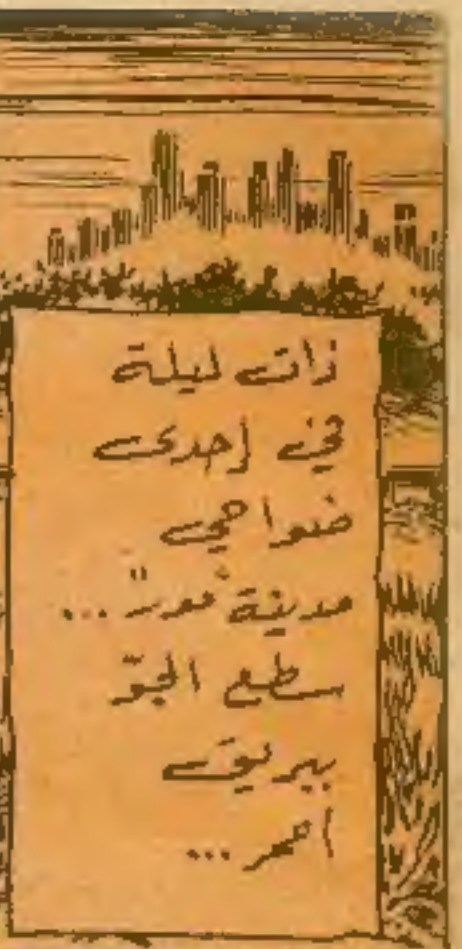 ذات ليلة
في إحدى
ضواحي
مدينة
سطع الجوّ
ببريق
أحمر...